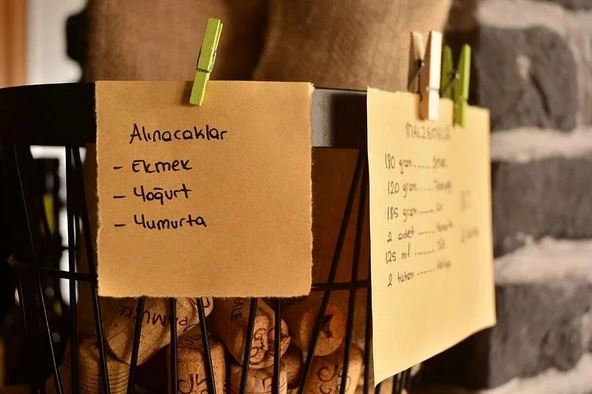 Alınacaklar
- Ekmek
- Yoğurt
- Yumurta
MALZEMELER
180 gram......
120 gram......
185 gram...... Un
2 adet...... Yumurta
125 ml...... Süt
2 tutam......
PAMUK